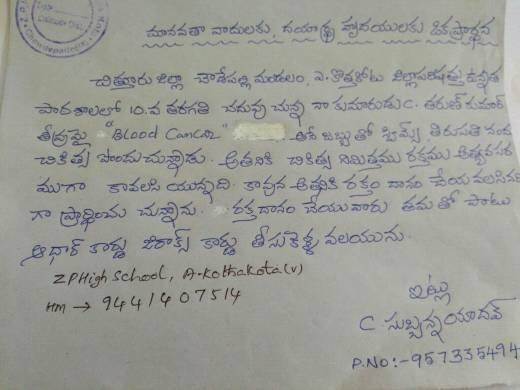 మానవతా వాదులకు, దయార్ద్ర హృదయులకు విజ్ఞప్తి ప్రార్థన
చిత్తూరు జిల్లా చౌడేపల్లి మండలం, ఎ.కొత్తకోట జిల్లాపరిషత్తు ఉన్నత
పాఠశాలలో 10.వ తరగతి చదువు చున్న నా కుమారుడు C. తరుణ్ కుమార్
తీవ్రమై "Blood Cancer" అనే జబ్బుతో స్విమ్స్ తిరుపతి నందు
చికిత్స పొందుచున్నాడు. అతనికి చికిత్స నిమిత్తము రక్తము అత్యవసర
ముగా కావలసి యున్నది. కావున అతనికి రక్తం దానం చేయవలసినది
గా ప్రార్థించు చున్నాను. రక్తదానం చేయువారు తమతో పాటు
ఆధార్ కార్డు జిరాక్స్ కార్డు తీసుకెళ్ళ వలయును.
ZP High School, A-Kothakota (v)
HM → 9441407514
ఇట్లు
C సుబ్బన్నయాదవ్
P.NO:- 957335494